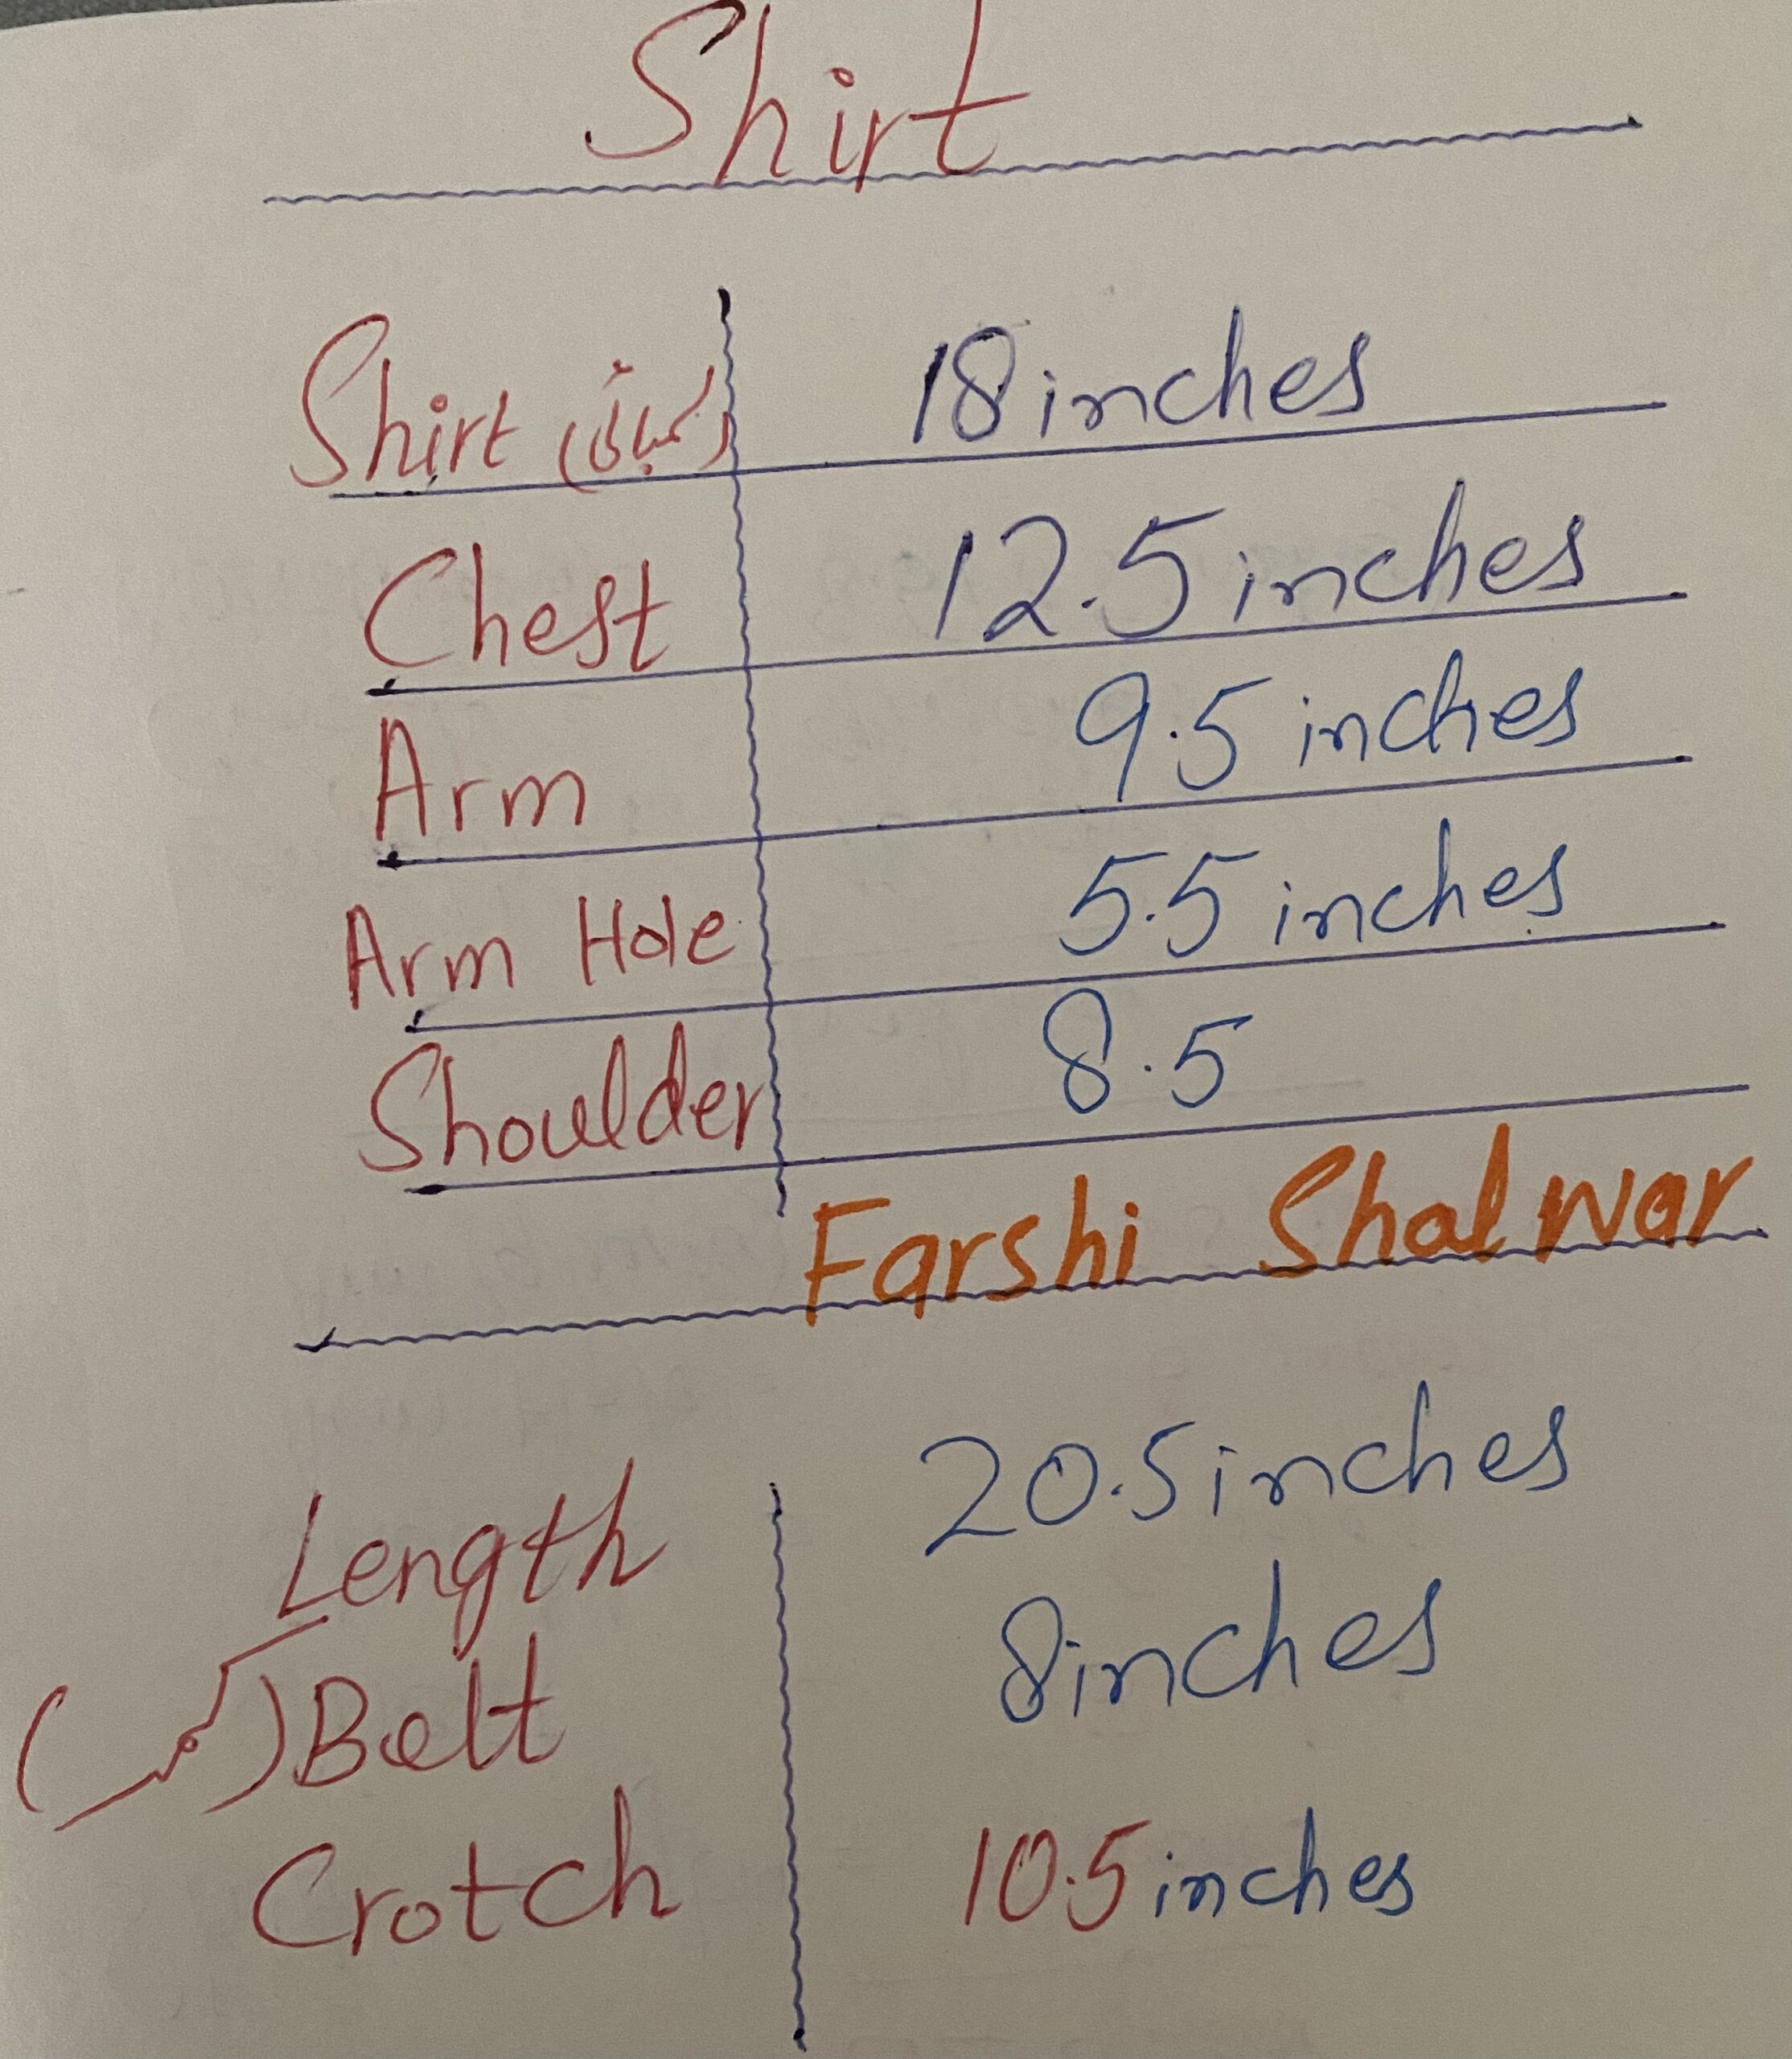 Shirt
Shirt (لمبائی) 18 inches
Chest 12.5 inches
Arm 9.5 inches
Arm Hole 5.5 inches
Shoulder 8.5
Farshi Shalwar
Length 20.5 inches
(کمر) Belt 8 inches
Crotch 10.5 inches